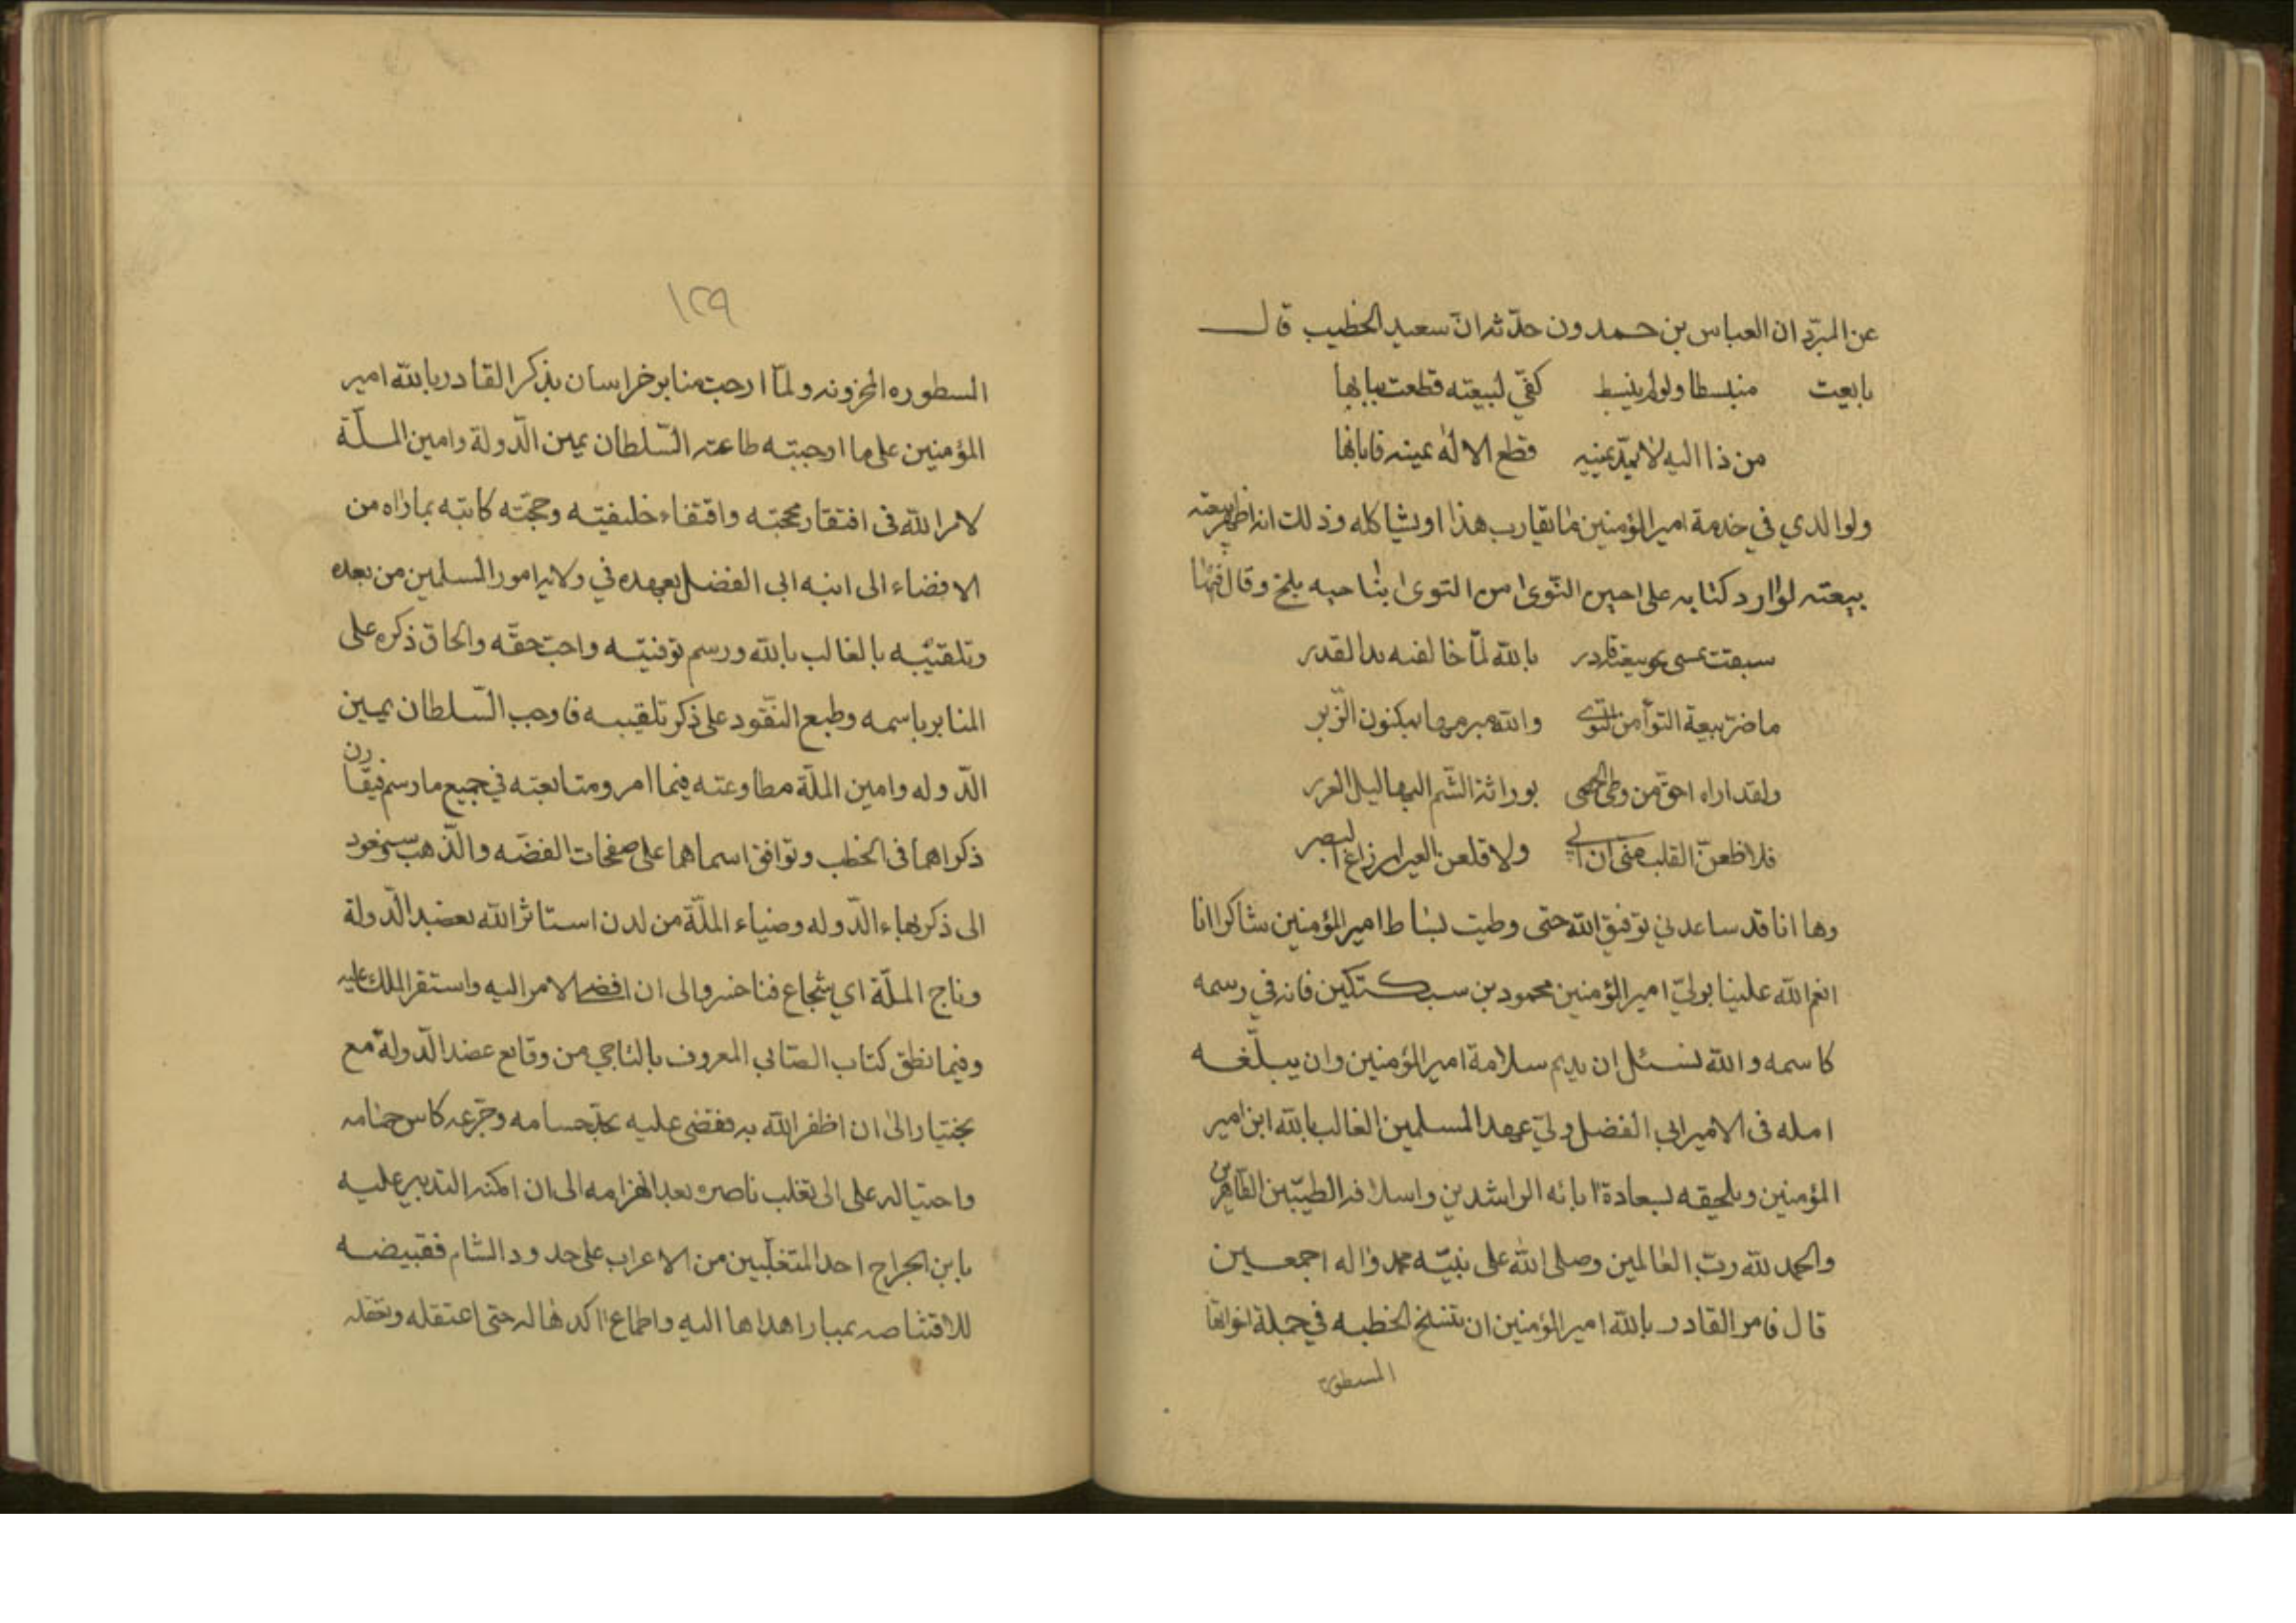 عن المبرّد ان العباس بن حمدون حدّثه انّ سعيد الخطيب قال
بايعت منبسطا ولو لم ينبسط كفّي لبيعته قطعت بنانها
من ذا اليه لا يمدّ يمينه قطع الاله يمينه فابانها
ولوالدي في خدمة امير المؤمنين ما يقارب هذا او يشاكله وذلك انه اظهر بيعته
بيعته لوارد كتابه على حين التوى من التوى بناحيه بلخ وقال فيها
سبقت بيعة قادر بالله لمّا خالفته يد القدر
ما ضرّ بيعة التوأمن والله مبرمها بمكنون الزّبر
ولقد اراه احق من وطى الحصى بوراثة الشّم البهاليل الغرر
فلاظعنّ القلب منى ان ولاقلعن العين ان زاغ البصر
وها انا قد ساعدني توفيق الله حتى وطيت بساط امير المؤمنين شاكرا انا
انعم الله علينا بوليّ امير المؤمنين محمود بن سبكتكين فانه في رسمه
كاسمه والله نسئل ان يديم سلامة امير المؤمنين وان يبلّغه
امله فى الامير ابي الفضل وليّ عهد المسلمين الغالب بالله ابن امير
المؤمنين ويلحقه بسعادة ابائه الراشدين واسلافه الطيّبين الطاهرين
والحمد لله ربّ العالمين وصلى الله على نبيّه محمد واله اجمعين
قال فامر القادر بالله امير المؤمنين ان تنسخ الخطبه في جملة اخواتها
المسطورة
١٢٩
السطوره المخزونه ولمّا ارجت منابر خراسان بذكر القادر بالله امير
المؤمنين على ما اوجبته طاعته السّلطان يمين الدّولة وامين الملّة
لامر الله فى افتقار محجته واقتفاء خليفته وحجّته كاتبه بما راه من
الافضاء الى ابنه ابى الفضل بعهده في ولاية امور المسلمين من بعده
وتلقيبه بالغالب بالله ورسم توفيته واجب حقّه والحاق ذكره على
المنابر باسمه وطبع النقود على ذكر تلقيبه فاوجب السّلطان يمين
الدّوله وامين الملّة مطاوعته فيما امر ومتابعته في جميع ما رسم فيقارن
ذكراهما فى الخطب وتوافق اسماهما على صفحات الفضّه والذهب وسنعود
الى ذكر بهاء الدّوله وضياء الملّة من لدن استاثر الله بعضد الدّولة
وتاج الملّة ابي شجاع فناخسرو الى ان افضى الامر اليه واستقر الملك عليه
وفيما نطق كتاب الصّابي المعروف بالتاجي من وقايع عضد الدّولة مع
بختيار الى ان اظفر الله به فقضى عليه بحدّ حسامه وجرّعه كاس حمامه
واحتياله على ابى تغلب ناصره بعد انهزامه الى ان امكنه التدبير عليه
بابن الجراح احد المتغلّبين من الاعراب على حدود الشام فقيضه
للاقتناصه بمبار اهداها اليه واطماع اكدها له حتى اعتقله